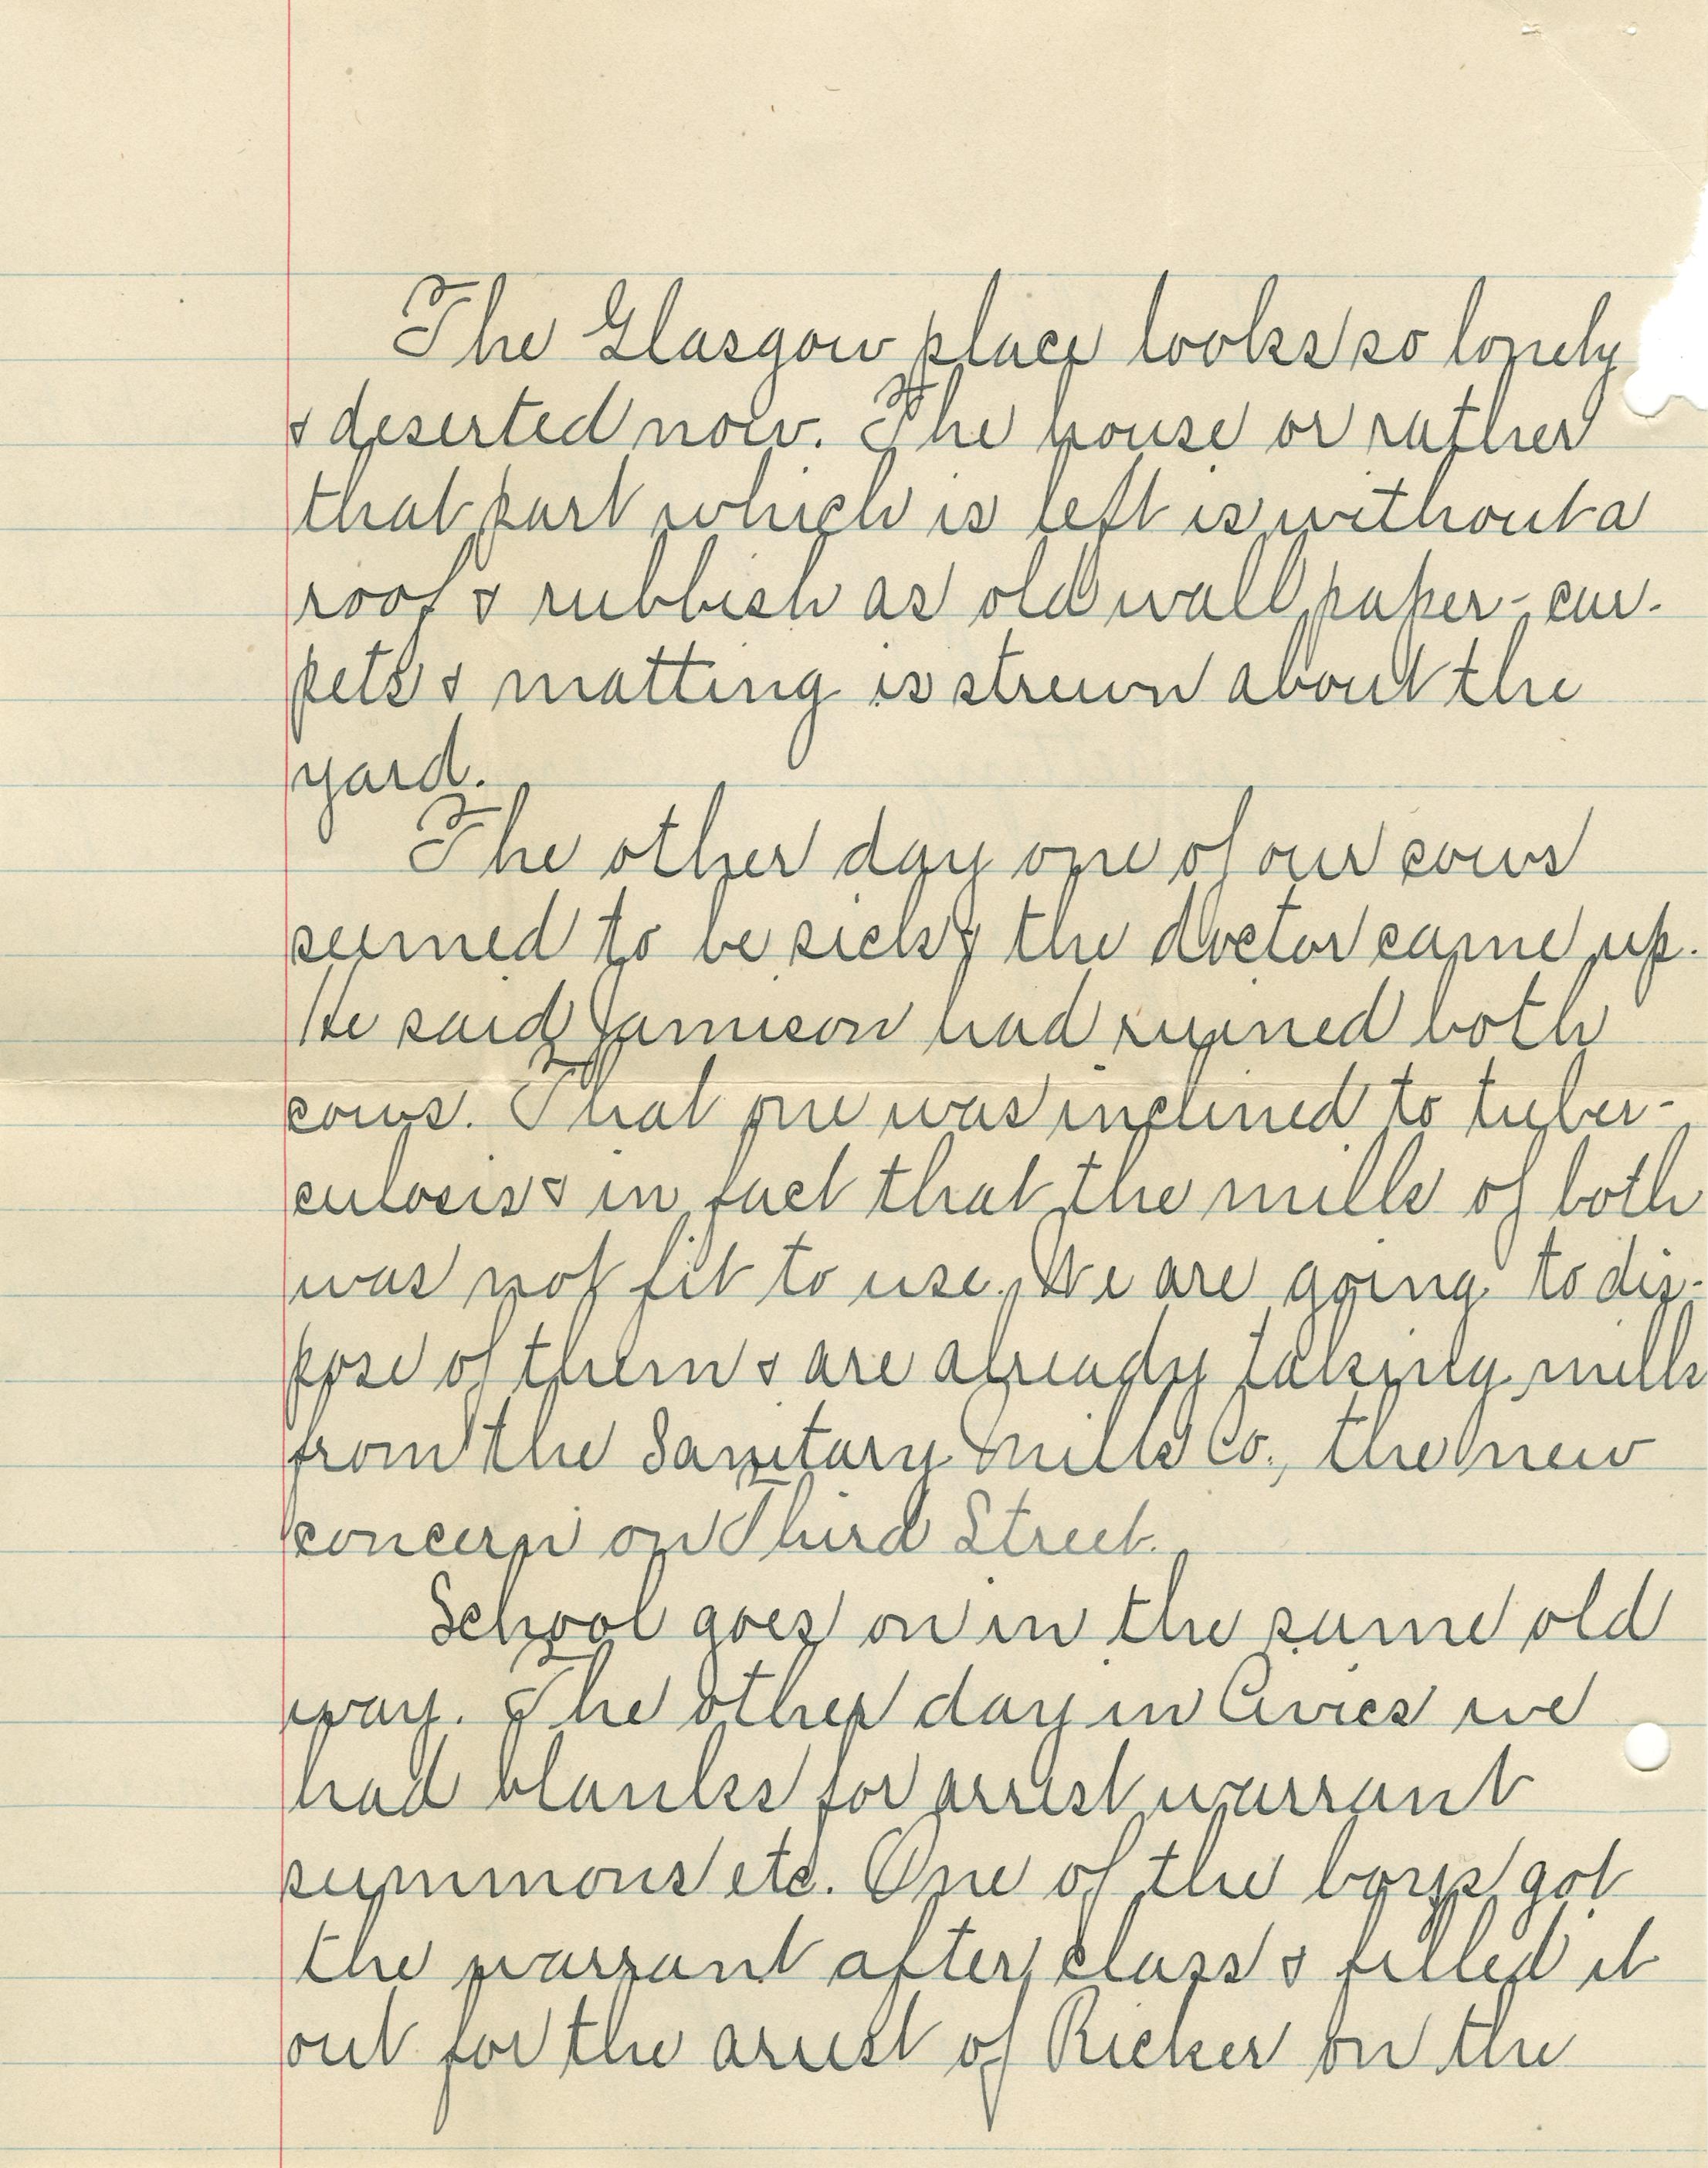 The Glasgow place looks so lonely
& deserted now. The house or rather
that part which is left is without a
roof & rubbish as old wall paper - car-
pets & matting is strewn about the
yard.
The other day one of our cows
seemed to be sick & the doctor came up.
He said Jamison had ruined both
cows. That one was inclined to tuber-
culosis & in fact that the milk of both
was not fit to use. We are going to dis-
pose of them & are already taking milk
from the Sanitary Milk Co., the new
concern on Third Street.
School goes on in the same old
way. The other day in Civics we
had blanks for arrest warrant
summons etc. One of the boys got
the warrant after class & filled it
out for the arrest of Ricker on the